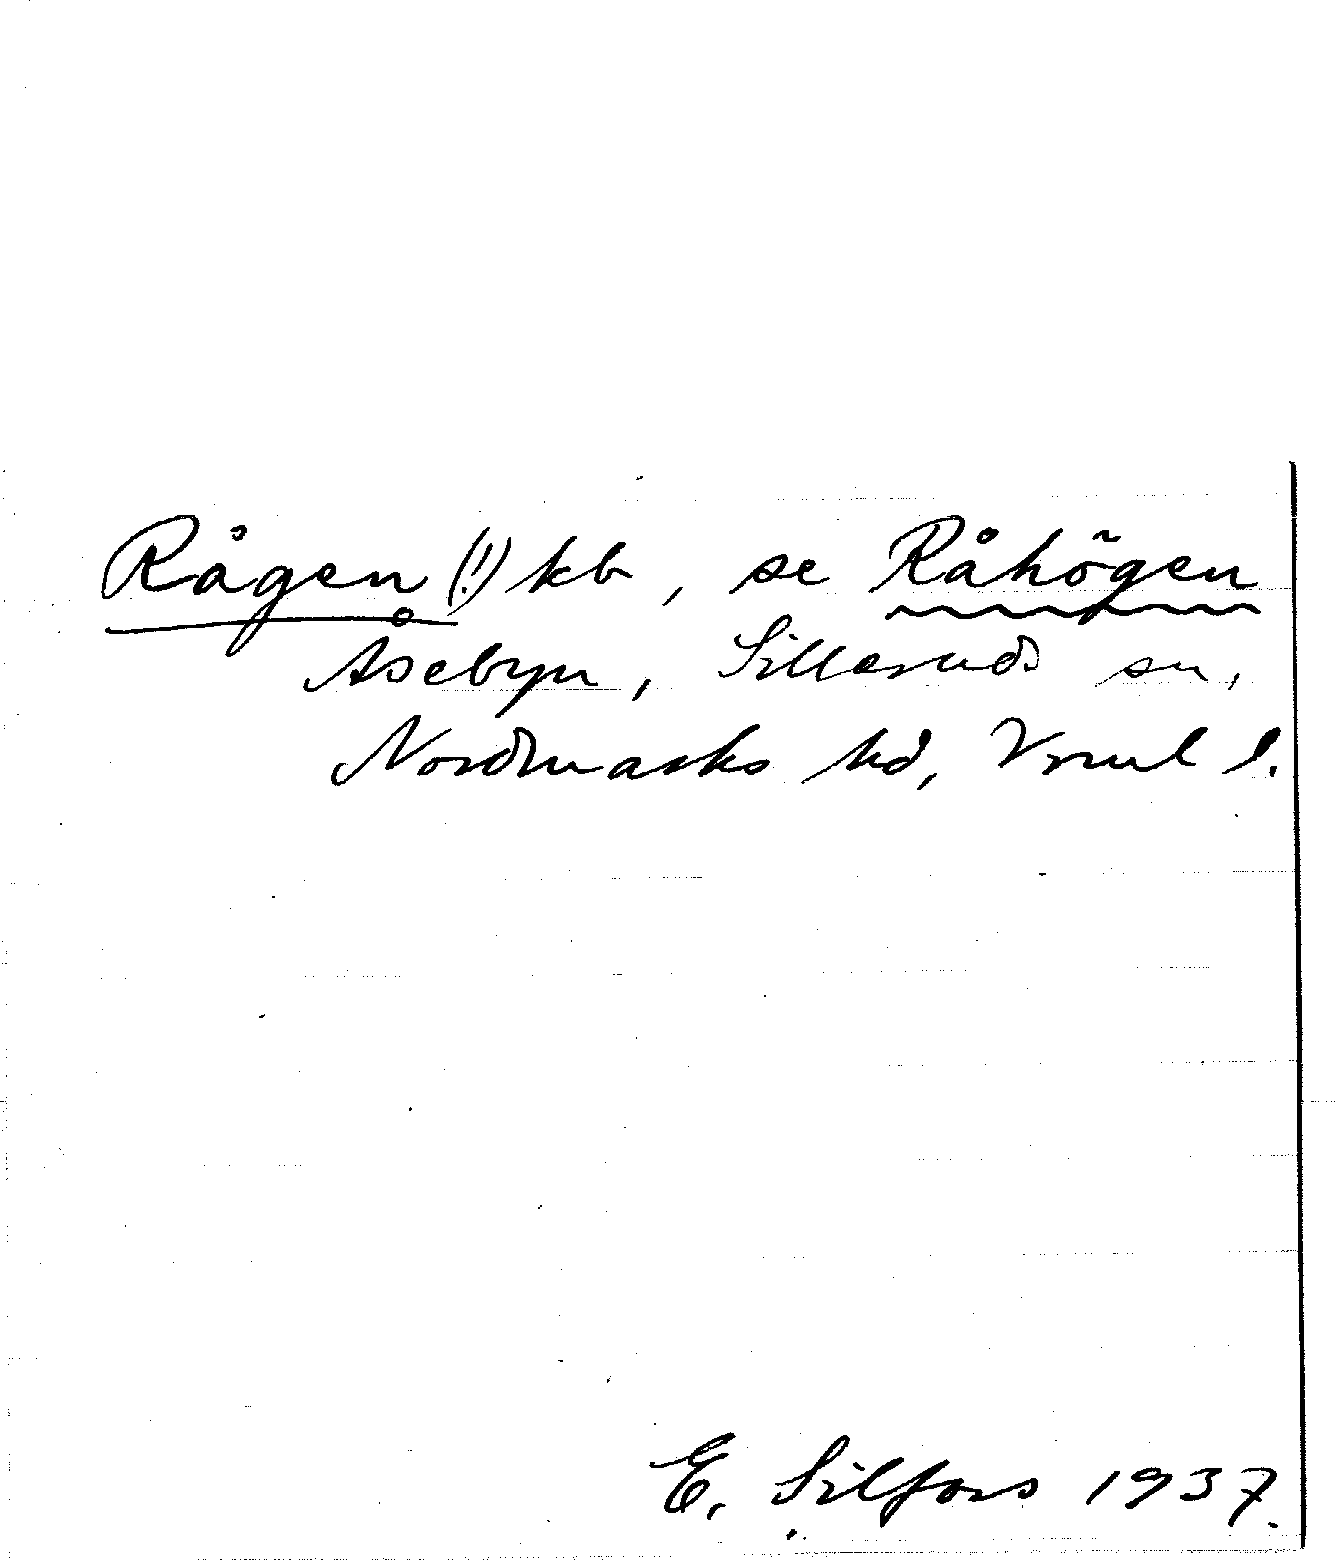 Rågen (!) kb, se Råhögen
Åsebyn, Silleruds sn,
Nordmarks hd, Vrml l.
E. Silfors 1937.